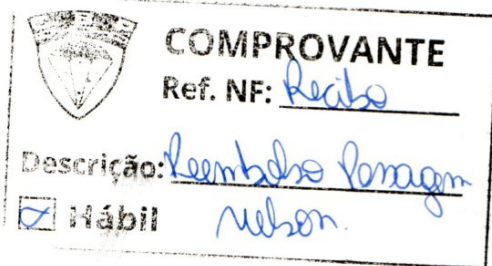 COMPROVANTE
Ref. NF: Recibo
Descrição: Reembolso Passagem
Hábil Nelson.